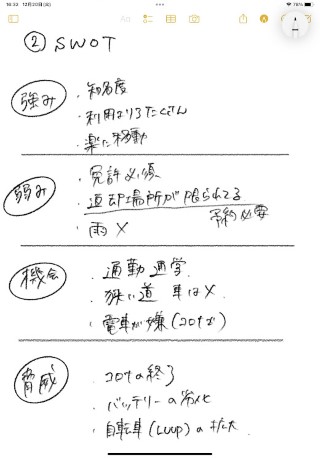 ② SWOT
強み
・知名度
・利用するひとたくさん
・楽に移動
弱み
・免許必須
・返却場所が限られてる
予約必要
・雨 X
機会
・通勤 通学
・狭い道 車はX
・電車が嫌(コロナで)
脅威
・コロナの終了
・バッテリーの劣化
・自転車(LUUP)の拡大